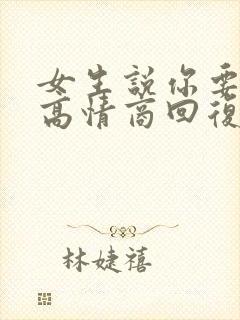 女生說你要
高情商回復
林婕禧